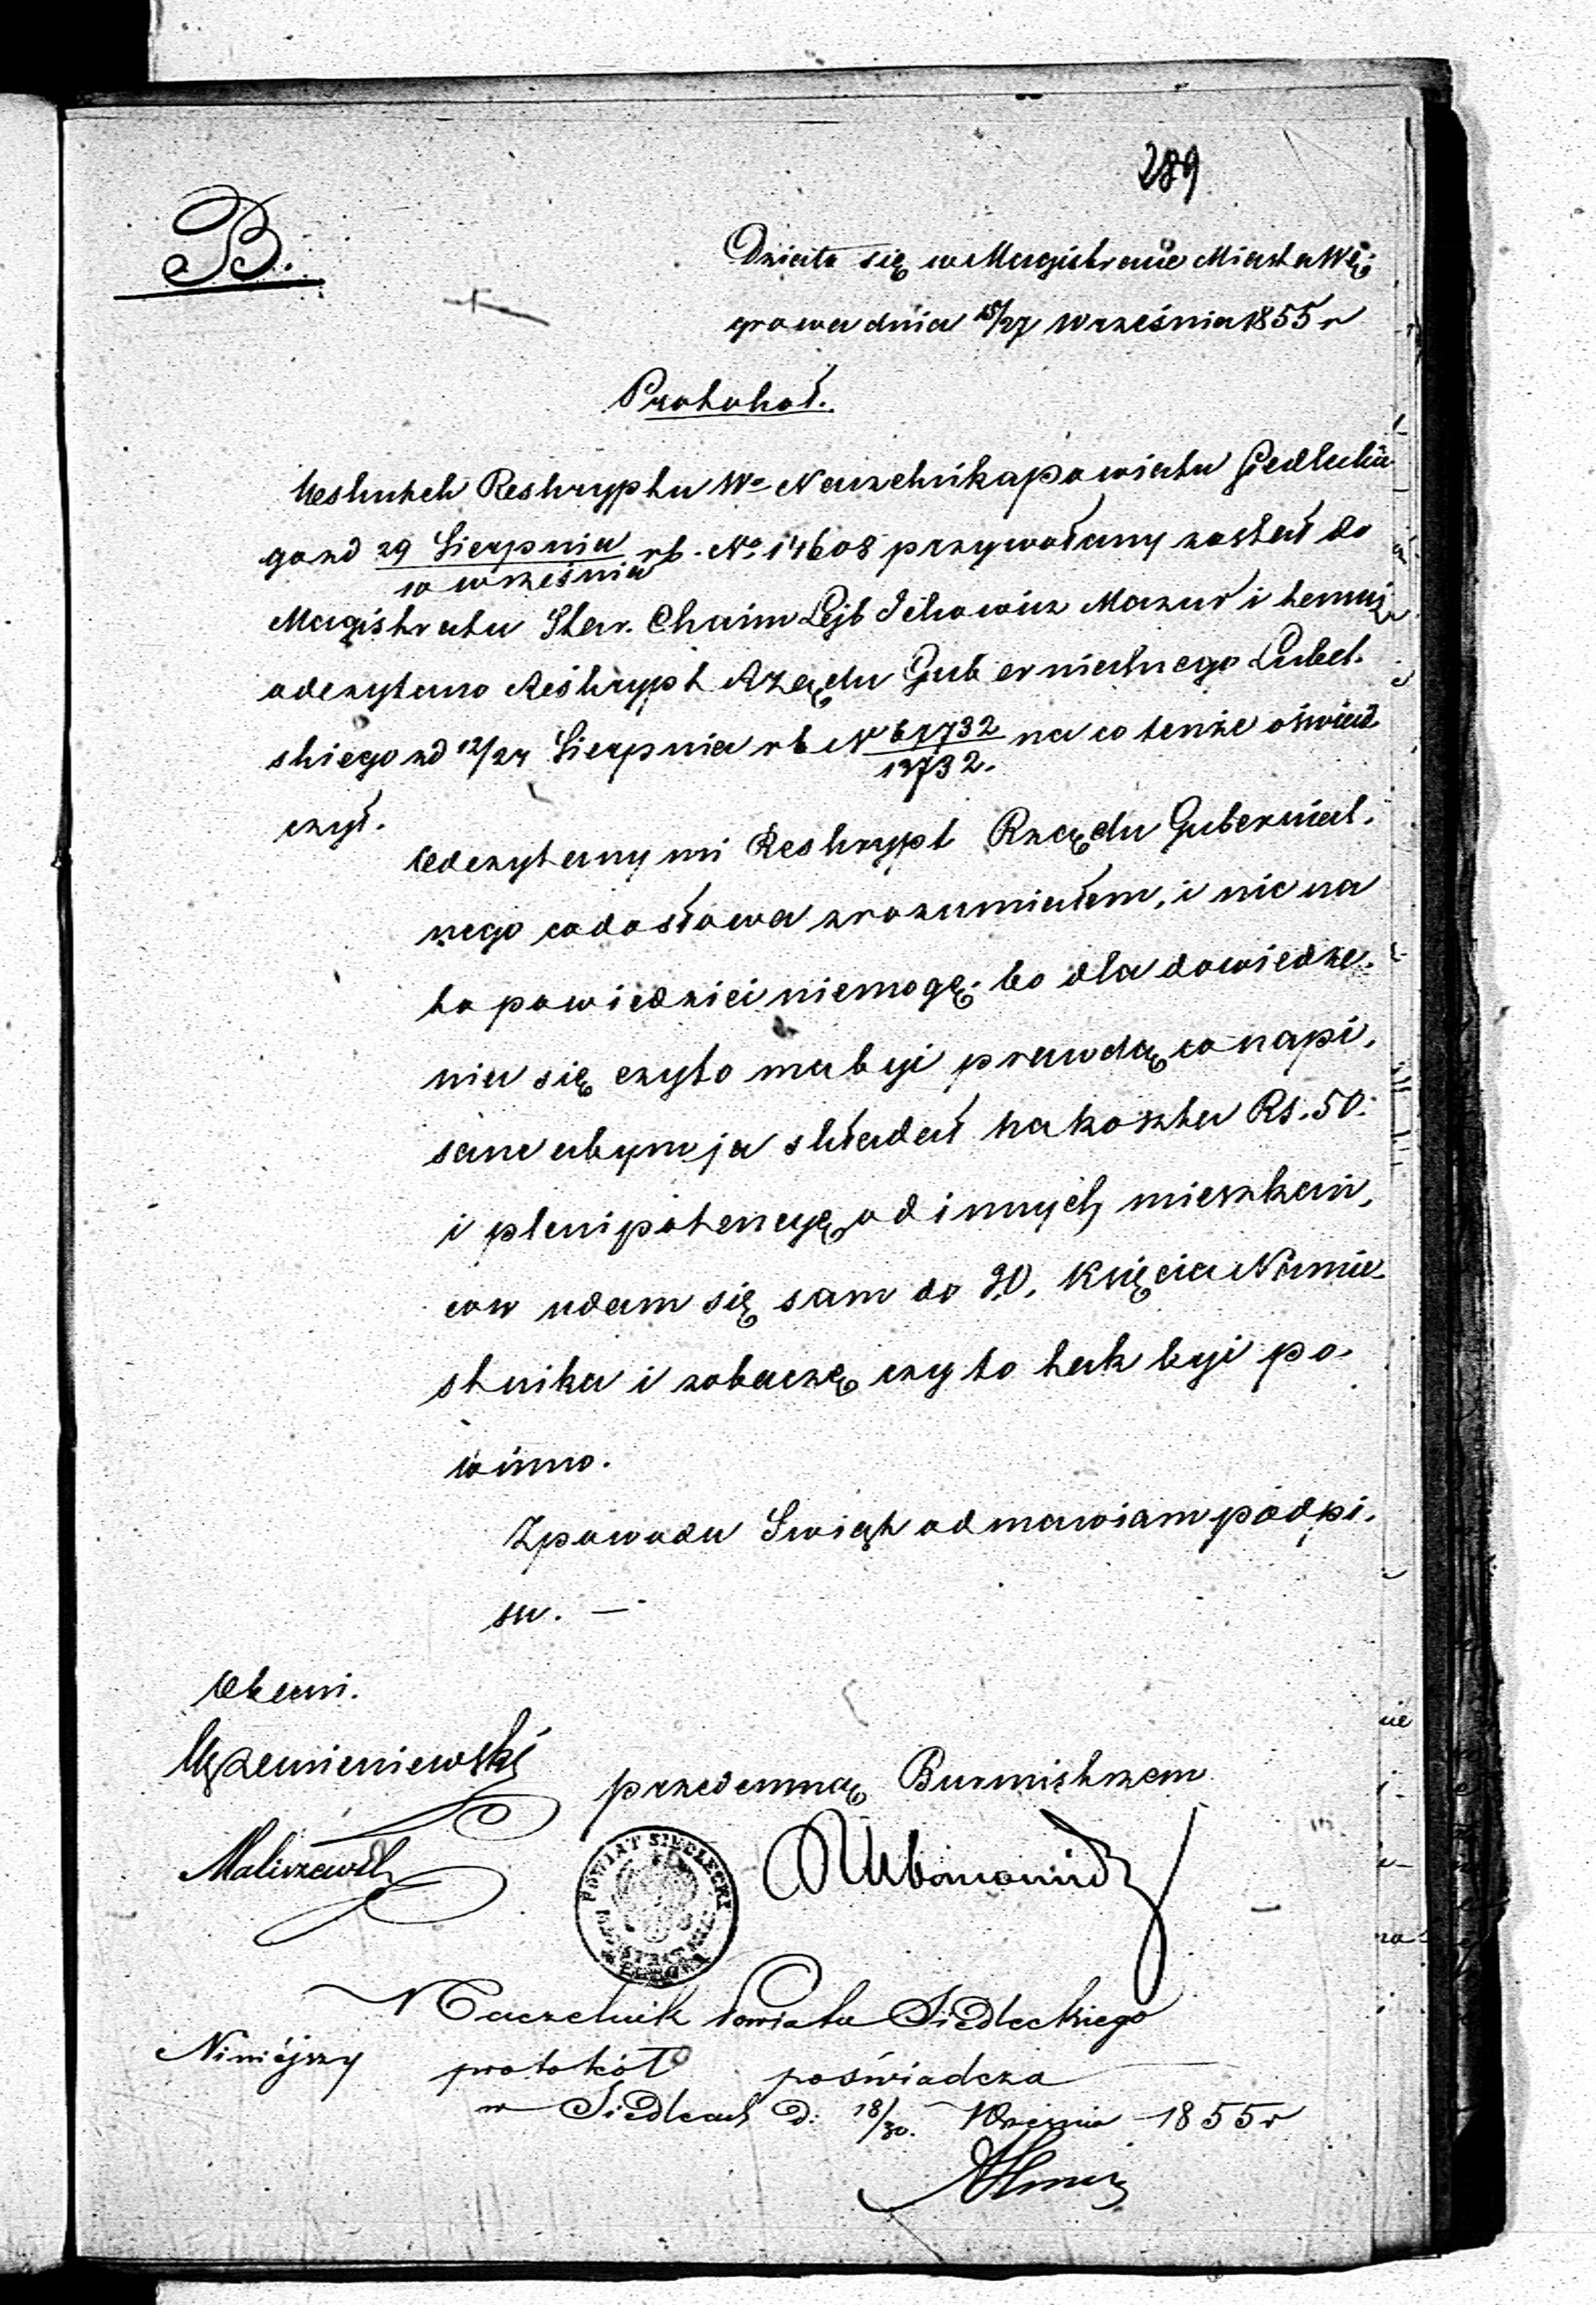 289
B.
Działo się w Magistracie Miasta Wę-
growa dnia 15/27 Września 1855 r
Protokół.
Wskutek Reskryptu Wo Naczelnika powiatu Siedleckie
go zd 29 Sierpnia rb. No 14608 przywołany został do
10 września
Magistratu Star. Chaim Lejb Ickowicz Mazur i temuż
odczytano Reskrypt Rządu Gubernialnego Lubel.
skiego zd 12/24 Sierpnia rb N 61732 na co tenże oświad
13732.
czył.
Odczytany mi Reskrypt Rządu Gubernial.
nego co do słowa zrozumiałem, i nic na
to powiedzieć niemogę. bo dla dowiedze.
nia się czy to ma być prawdą co napi.
sane abym ja składał na koszta Rs. 50.
i plenipotencyę od innych mieszkań,
ców udam się sam do J.O. Księcia Namie-
stnika i zobaczę czy to tak być po-
winno.
Z powodu Świąt odmawiam podpi.
su. —
Obecni.
przedemną Burmistrzem
Maliszewski
POWIAT SIEDLECKI
Naczelnik Powiatu Siedleckiego
Niniejszy protokół poświadcza
w Siedlcach D: 18/30. Września 1855 r